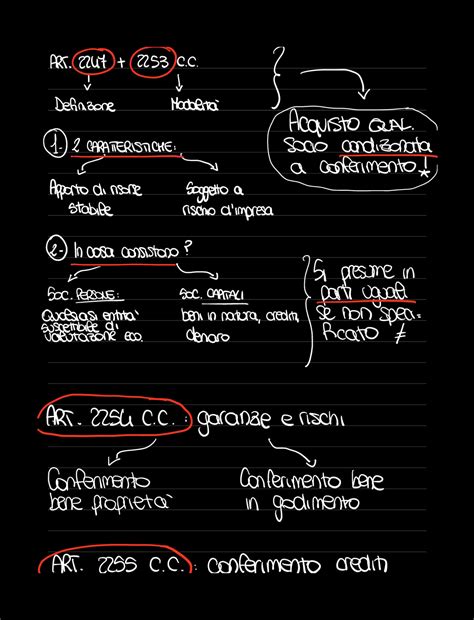 ART. 2247 + 2253 C.C.
Definizione Modalità
Acquisto qual.
socio condizionata
a conferimento! *
1. 2 CARATTERISTICHE:
Apporto di risorse
stabile
Soggetto a
rischio d'impresa
2- In cosa consistono?
Soc. PERSONE:
Qualsiasi entità
suscettibile di
valutazione eco.
Soc. CAPITALI
beni in natura, crediti,
denaro
Si presume in
parti uguali
se non speci-
ficato ≠
ART. 2254 C.C.: garanzie e rischi
Conferimento
bene proprietà
Conferimento bene
in godimento
ART. 2255 C.C.: conferimento crediti